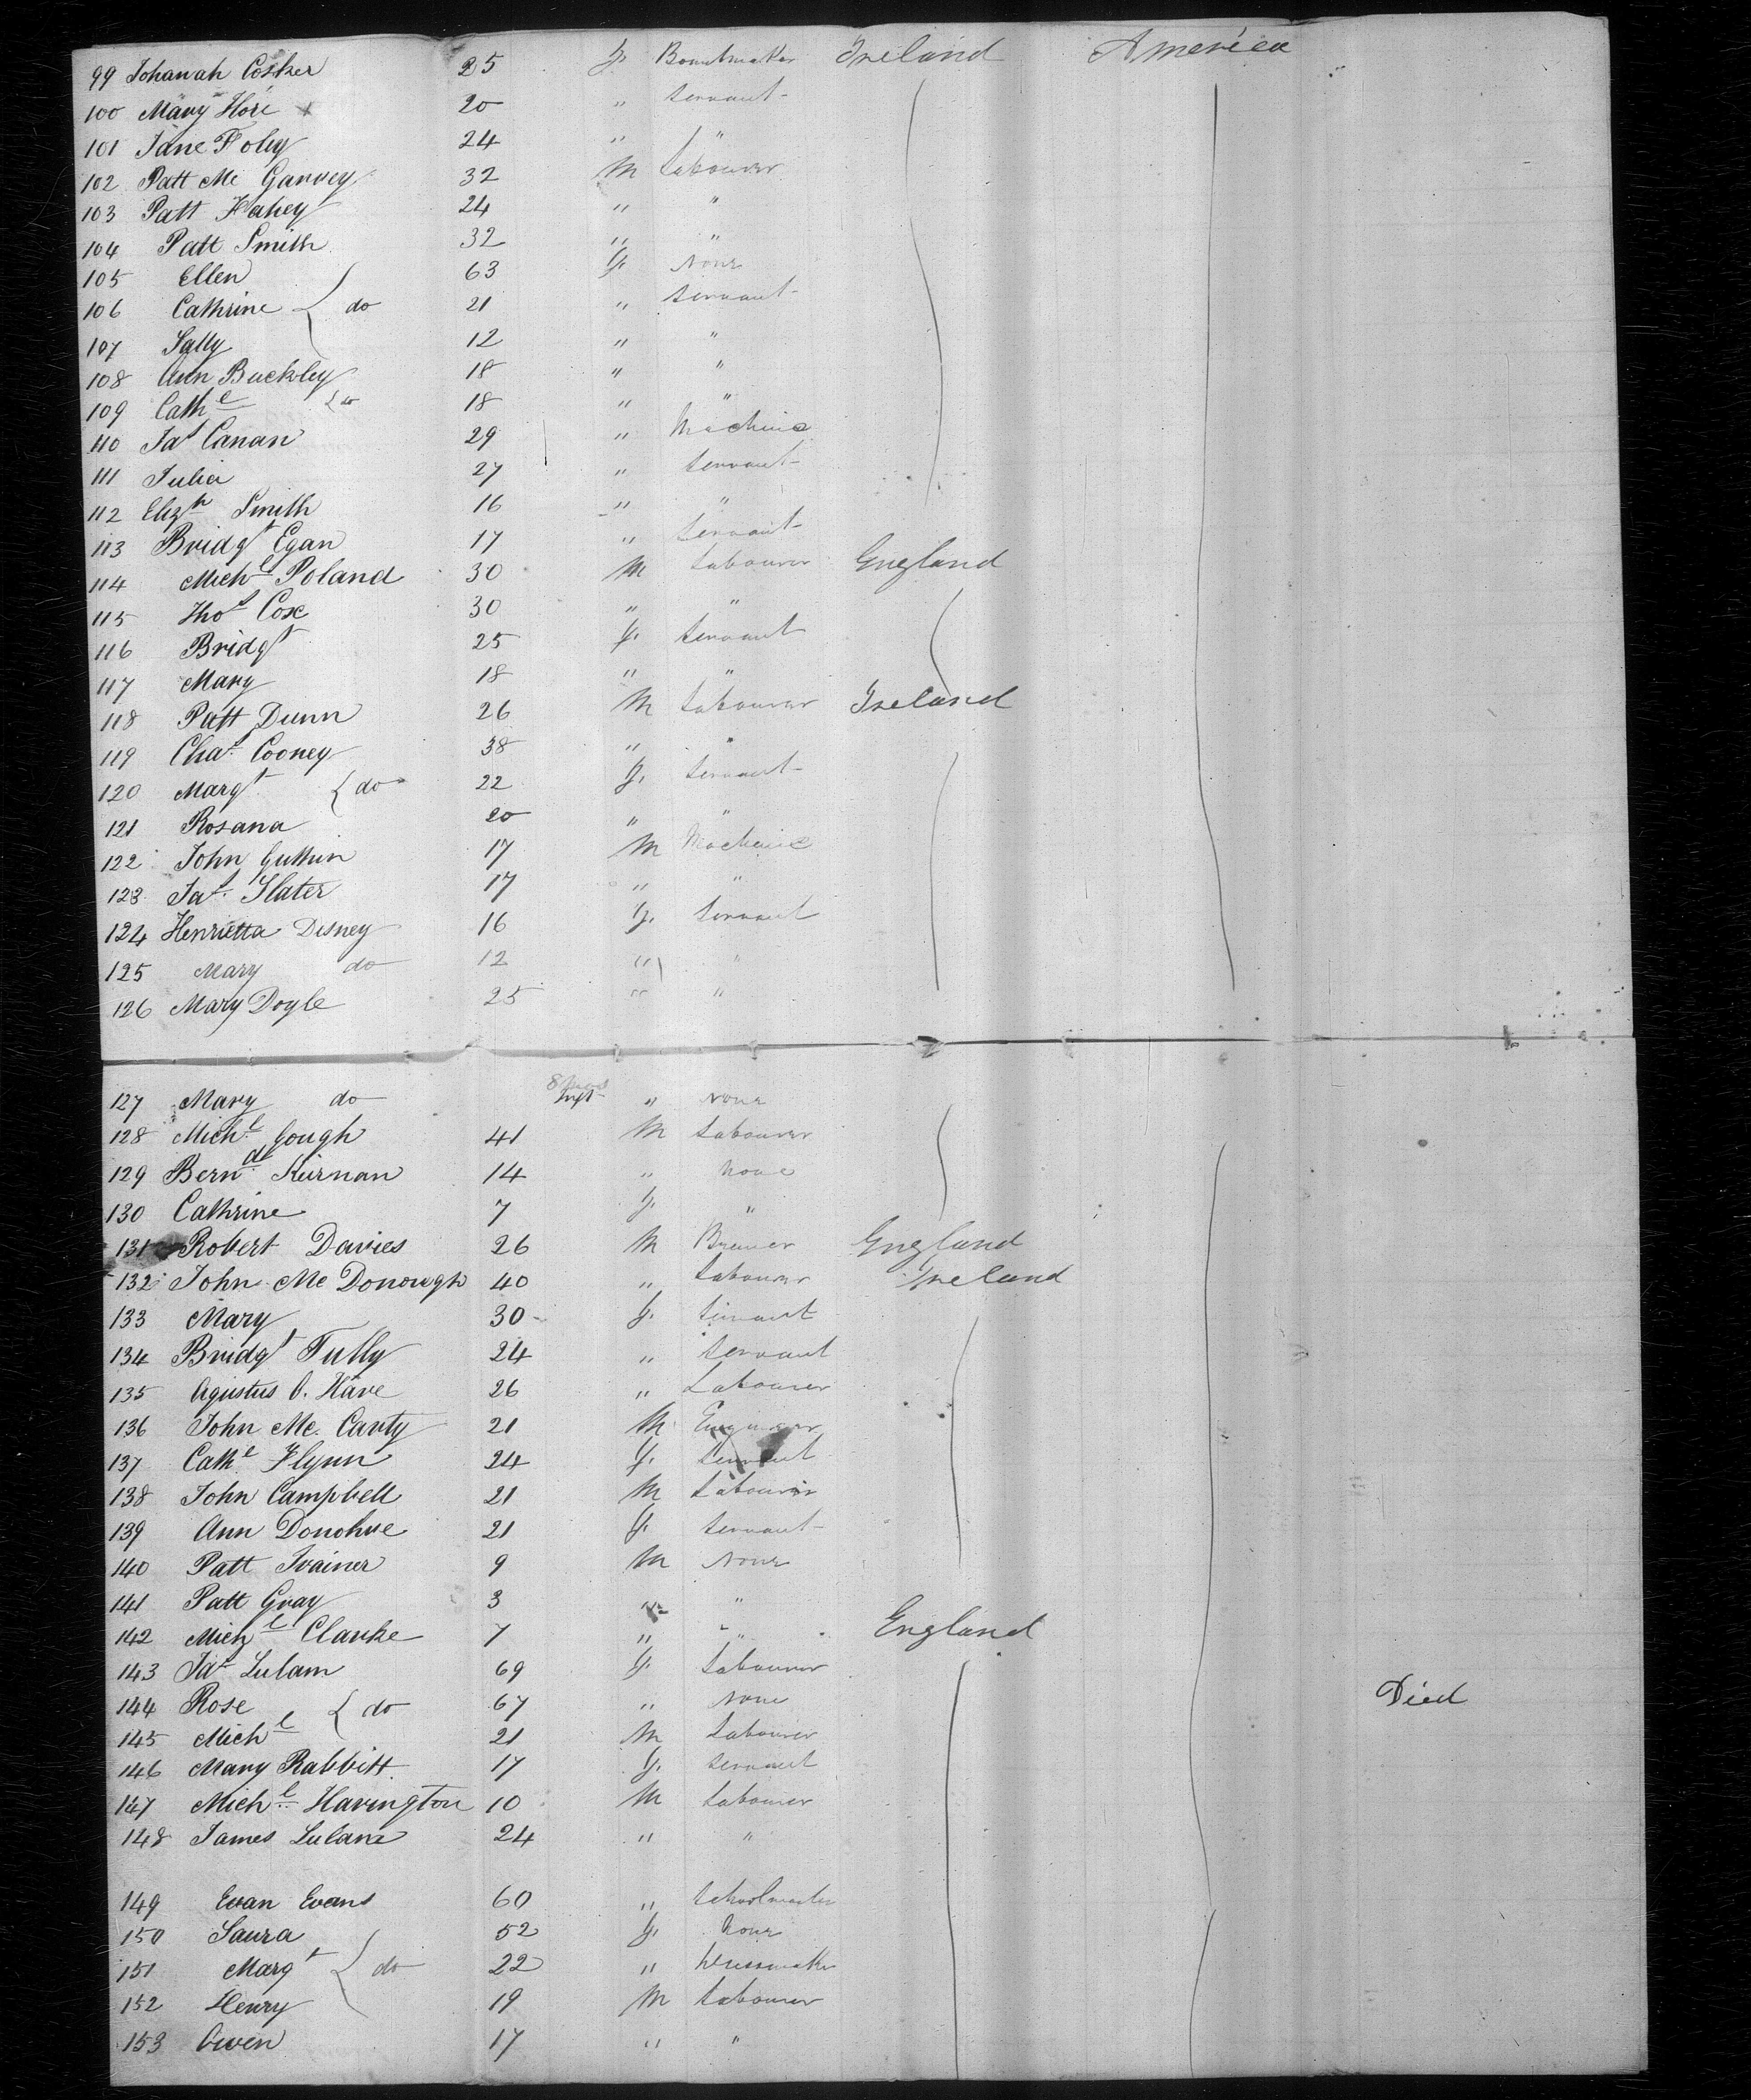 99 Johanah Cosker 25 F. Bonnetmaker Ireland America
100 Mary Hore x 20 " Servant
101 Jane Foley 24 " "
102 Patt Mc Garvey 32 M Labourer
103 Patt Fahey 24 " "
104 Patt Smith 32 " "
105 Ellen 63 F. None
106 Cathrine { do 21 " Servant
107 Sally 12 " "
108 Ann Buckley 18 " "
109 Cathe { do 18 " "
110 Jas Canan 29 " Mechanic
111 Julia 27 " Servant
112 Elizth Smith 16 " "
113 Bridgt Egan 17 " Servant
114 Michl Poland 30 M Labourer England
115 Thos Cox 30 " "
116 Bridgt 25 F. Servant
117 Mary 18 " "
118 Patt Dunn 26 M Labourer Ireland
119 Chas Cooney 38 " "
120 Margt { do 22 F. Servant
121 Rosana 20 " "
122 John 17 M Mechanic
123 Jas Slater 17 " "
124 Henrietta Disney 16 F. Servant
125 Mary do 12 " "
126 Mary Doyle 25 " "
127 Mary do Inft " None
128 Michl Gough 41 M Labourer
129 Bernd Kiernan 14 " None
130 Cathrine 7 F. "
131 Robert Davies 26 M Brewer England
132 John Mc Donough 40 " Labourer Ireland
133 Mary 30 F. Servant
134 Bridgt Tully 24 " Servant
135 Agustus O. Hare 26 " Labourer
136 John Mc. Carty 21 M Engineer
137 Cathe Flynn 24 F. Servant
138 John Campbell 21 M Labourer
139 Ann Donohue 21 F. Servant
140 Patt Trainer 9 M None
141 Patt Gray 3 " "
142 Michl Clarke 7 " " England
143 Jas Lulam 69 F. Labourer
144 Rose { do 67 " None Died
145 Michl 21 M Labourer
146 Mary Rabbitt 17 F. Servant
147 Michl Harington 10 M Labourer
148 James Lulam 24 " "
149 Evan Evans 60 " Schoolmaster
150 Laura 52 F. None
151 Margt { do 22 " Dressmaker
152 Henry 19 M Labourer
153 Owen 17 " "